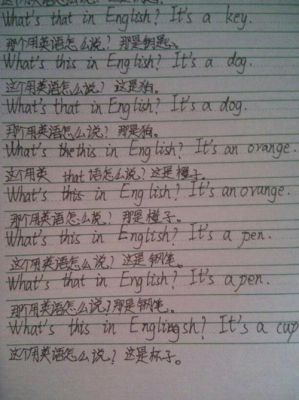 What's that in English? It's a key.
那个用英语怎么说? 那是钥匙。
What's this in English? It's a dog.
这个用英语怎么说? 这是狗。
What's that in English? It's a dog.
那个用英语怎么说? 那是狗。
What's the this in English? It's an orange.
这个用英 that 语怎么说? 这是橙子。
What's this in English? It's an orange.
那个用英语怎么说? 那是橙子。
What's this in English? It's a pen.
这个用英语怎么说? 这是钢笔。
What's that in English? It's a pen.
那个用英语怎么说? 那是钢笔。
What's this in English? It's a cup
这个用英语怎么说? 这是杯子。